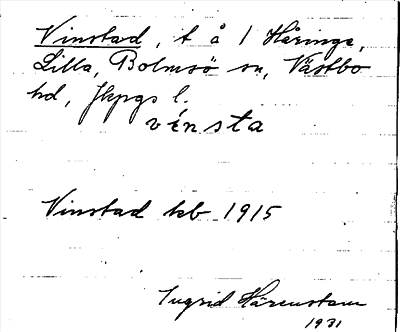 Vinstad, t å 1 Håringe,
Lilla, Bolmsö sn, Västbo
hd, Jkpgs l.
vinsta
Vinstad kb 1915
Ingrid Härenstam
1931